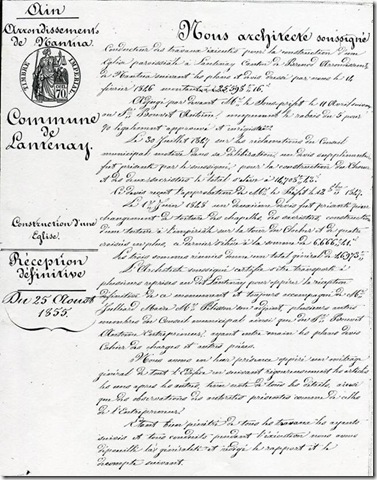 Ain
Arrondissement
de Nantua
TIMBRE IMPERIAL
70
Commune
de
Lantenay.
Construction d'une
Eglise.
Réception
définitive
Du 25 Aout
1855.
Nous architecte soussigné
Conducteur des travaux exécutés pour la construction d'une
Eglise paroissiale à Lantenay Canton de Brenod Arrondissement
de Nantua suivant les plans et devis dressé par nous le 14
février 1846 montant à
Adjugé par devant Mr. le Sous préfet le 11 Avril
Sr. Benoit Antoine, moyennant le rabais du 5 pour
% également approuvé et enregistré.
Le 30 Juillet 1847 sur les réclamations du Conseil
municipal motivé dans sa délibération, un devis supplémentaire
fut présenté par le soussigné, pour la construction du Choeur
et de deux sacristies le total s'élève à
Ce devis reçut l'approbation de Mr. le Préfet le 1847.
Le 1er Juin 1848 un deuxième devis fut présenté pour
changement de toiture des chapelles, des sacristies, construction
d'une toiture à l'impériale sur la tour du Clocher et de quatre
croisées en plus, ce dernier s'élève à la somme de
Les trois sommes réunies donne un total général de
L'Architecte soussigné certifie s'être transporté à
plusieurs reprises au dit Lantenay pour opérer la réception
définitive de ce monument et toujours accompagné de Mr.
Juillard Maire Mr. adjoint, plusieurs autres
membres du Conseil municipal ainsi que du Sr. Benoit
Antoine Entrepreneur, ayant entre mains les plans devis
Cahier des charges et autres pièces.
Nous avons en leur présence opéré un métrage
général de tout l'Edifice en suivant rigoureusement les articles
les uns après les autres, tenu note de tous les détails, ainsi
que des observations des autorités présentes comme de celles
de l'Entrepreneur.
Etant bien pénétré de tous les travaux les ayants
suivis et tous conduits pendant l'exécution nous avons
dépouillé les généralités et rédigé le rapport et le
décompte suivant.